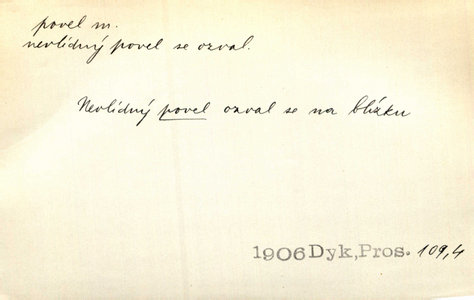 povel m.
nevlídný povel se ozval.
Nevlídný povel ozval se na blízku
1906 Dyk, Pros. 109,4